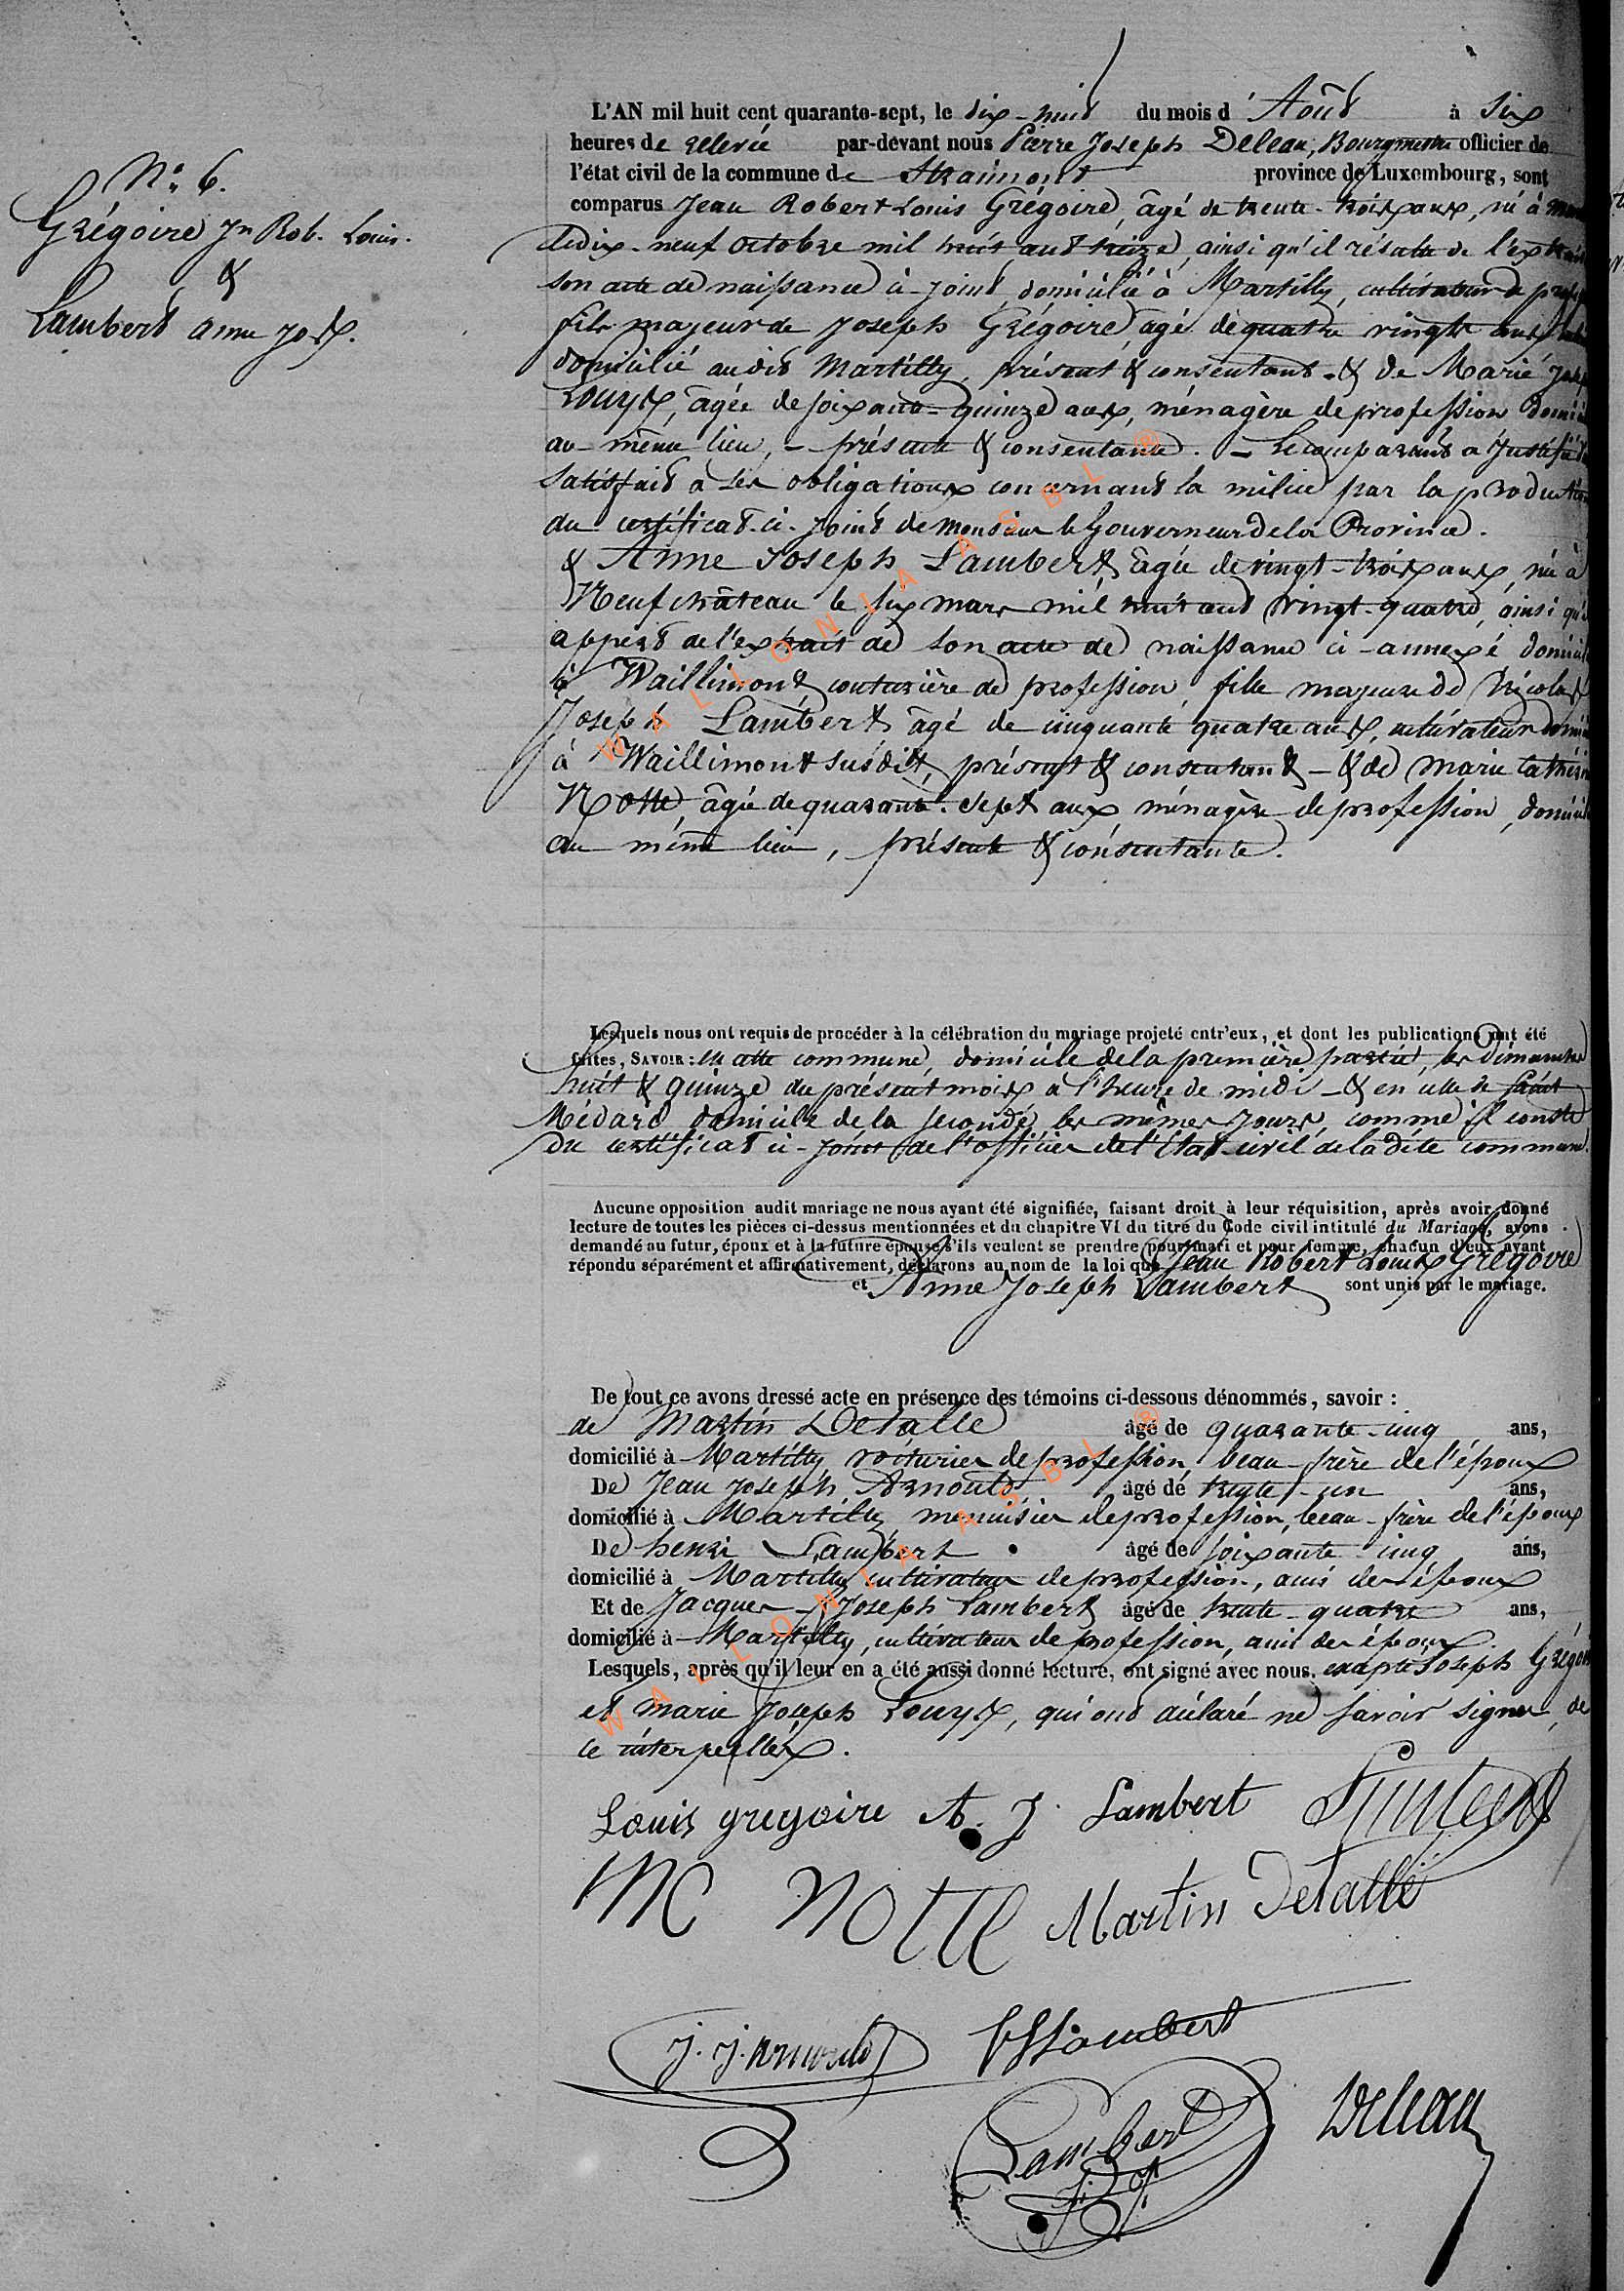 N.° 6.
Grégoire Jn Rob. Louis.
&
Lambert anne Josh.
L'AN mil huit cent quarante-sept, le dix-huit du mois d'Août à Six
heures de relevée par-devant nous Pierre Joseph Deleau, Bourgmestre officier de
l'état civil de la commune de Straimont province de Luxembourg, sont
comparus Jean Robert Louis Grégoire, âgé de trente-trois ans, né à
le dix-neuf octobre mil huit cent treize, ainsi qu'il résulte de l'extrait
son acte de naissance ci-joint, domicilié à Martilly, cultivateur de
fils majeur de Joseph Grégoire, âgé de quatre vingts ans
domicilié audit Martilly, présent & consentant. & de Marie
Louys, âgée de soixante-quinze ans, ménagère de profession
au même lieu, - présente & consentante. - Le comparant a justifié
satisfait à ses obligations concernant la milice par la production
du certificat ci-joint de Monsieur le Gouverneur de la Province.
& Anne Joseph Lambert, âgée de vingt-trois ans, née à
Neufchâteau le six mars mil huit cent vingt-quatre, ainsi qu'
appert de l'extrait de son acte de naissance ci-annexé
à Waillimont couturière de profession, fille majeure de Nicolas
Joseph Lambert âgé de cinquante quatre ans, cultivateur
à Waillimont susdit, présent & consentant - & de Marie
Notte, âgée de quarante-sept ans ménagère de profession,
au même lieu, présente & consentante.
Lesquels nous ont requis de procéder à la célébration du mariage projeté entr'eux, et dont les publications ont été
faites, SAVOIR : en cette commune, domicile de la première partie, les dimanches
huit & quinze du présent mois à l'heure de midi - & en celle de Saint
Médard domicile de la seconde, les mêmes jours, comme il conste
du certificat ci-joint de l'officier de l'Etat-civil de la dite commune.
Aucune opposition audit mariage ne nous ayant été signifiée, faisant droit à leur réquisition, après avoir donné
lecture de toutes les pièces ci-dessus mentionnées et du chapitre VI du titre du Code civil intitulé du Mariage, avons
demandé au futur, époux et à la future épouse s'ils veulent se prendre pour mari et pour femme, chacun d'eux ayant
répondu séparément et affirmativement, déclarons au nom de la loi que Jean Robert Louis Grégoire
et Anne Joseph Lambert sont unis par le mariage.
De tout ce avons dressé acte en présence des témoins ci-dessous dénommés, savoir :
de Martin Detalle âgé de quarante-cinq ans,
domicilié à Martilly voiturier de profession, beau-frère de l'époux
De Jean Joseph Arnould âgé de trente-un ans,
domicilié à Martilly menuisier de profession, beau-frère de l'époux
De henri Lambert âgé de soixante cinq ans,
domicilié à Martilly cultivateur de profession, ami des époux
Et de Jacques-Joseph Lambert âgé de trente-quatre ans,
domicilié à Martilly, cultivateur de profession, ami des époux.
Lesquels, après qu'il leur en a été aussi donné lecture, ont signé avec nous, excepté Joseph
et Marie Joseph Louys, qui ont déclaré ne savoir signer, de
ce interpellés.
Louis gregoire A. J. Lambert
MC NOTTE Martin Detalle
J. J. Arnould Lambert
Lambert JJ Deleau
WALLONIA ASBL ®
WALLONIA ASBL ®